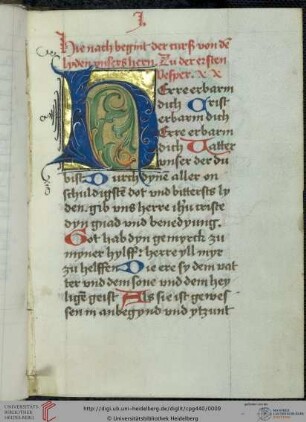 I.
Hie nach begint der curß von dē
lyden vnsers hern. Zu der ersten
vesper. x x
HErre erbarm
dich Crist
erbarm dich
Erre erbarm
dich Vatter
vnser der du
bist Durch dyne aller on
schuldigstē dot vnd bitterstē ly
den. gib vns herre ihū criste
dyn gnad vnd benedyung.
Got hab dyn gemyrck zu
myner hylff: herre yll myr
zu helffen Die ere sy dem vat
ter vnd dem sone vnd dem hey
ligē geist Als sie ist gewes
sen in anbegynd vnd ytzunt
UNIVERSITÄTS-
BIBLIOTHEK
HEIDELBERG
http://digi.ub.uni-heidelberg.de/diglit/cpg440/0009
© Universitätsbibliothek Heidelberg